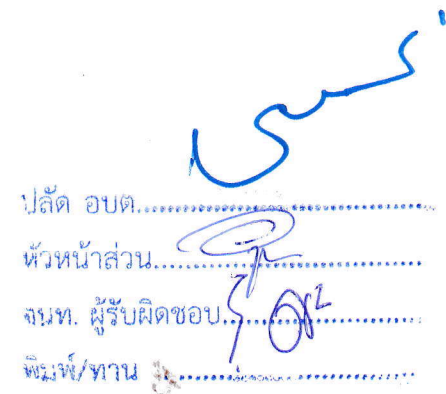 ปลัด อบต.............................
หัวหน้าส่วน.............................
จนท. ผู้รับผิดชอบ.............................
พิมพ์/ทาน .............................